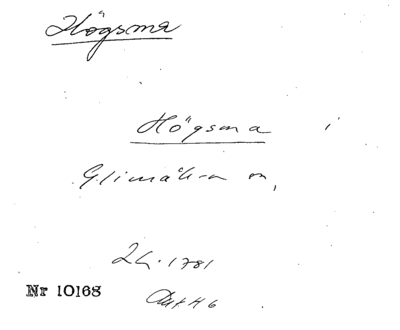 Högsma
Högsma i
Glimåkra
24. 1781
Nr 10168